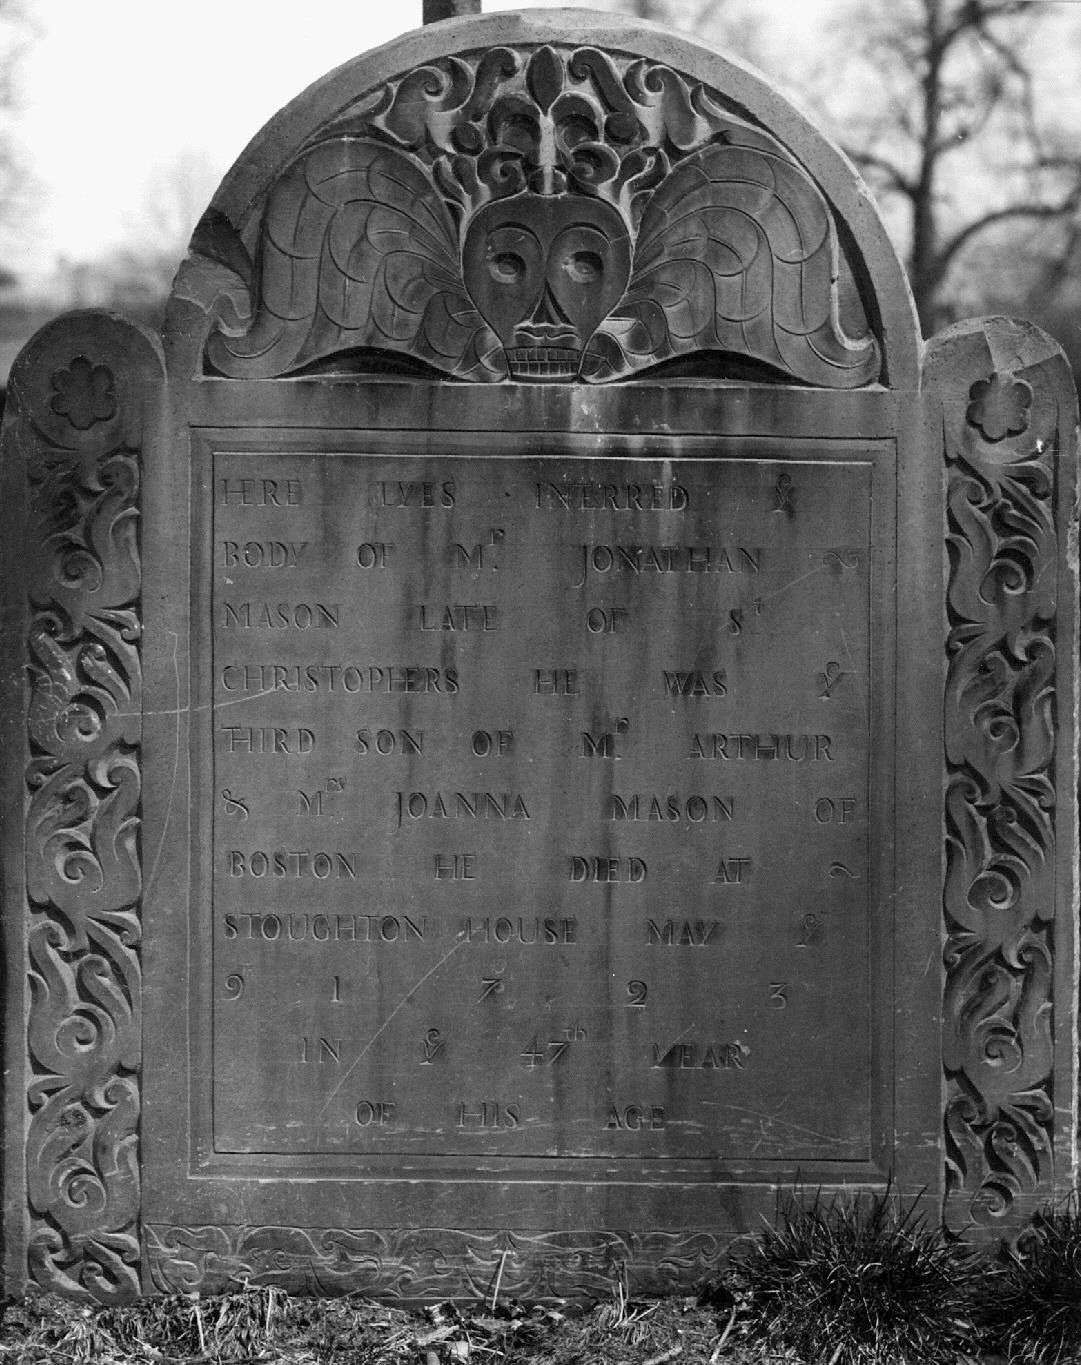 HERE LYES INTERRED Yᵉ
BODY OF Mʳ. JONATHAN ~
MASON LATE OF Sᵗ
CHRISTOPHERS HE WAS Yᵉ
THIRD SON OF Mʳ. ARTHUR
& Mʳˢ. JOANNA MASON OF
BOSTON HE DIED AT ~
STOUGHTON HOUSE MAY Yᵉ
9 1 7 2 3
IN Yᵉ 47ᵗʰ YEAR
OF HIS AGE